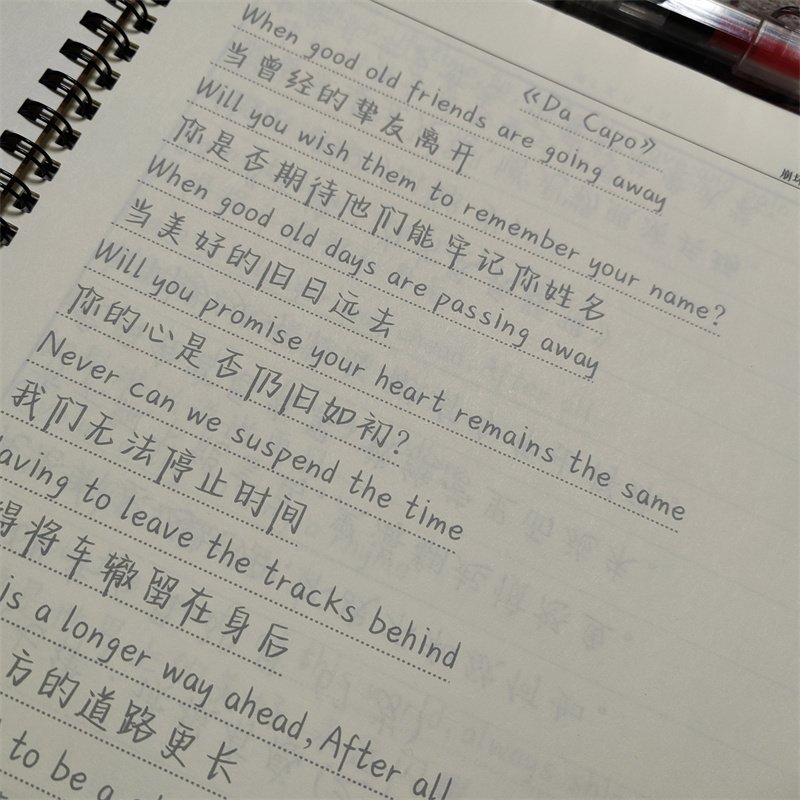 《Da Capo》
When good old friends are going away
当曾经的挚友离开
Will you wish them to remember your name?
你是否期待他们能牢记你姓名
When good old days are passing away
当美好的旧日远去
Will you promise your heart remains the same
你的心是否仍旧如初?
Never can we suspend the time
我们无法停止时间
to leave the tracks behind
得将车辙留在身后
is a longer way ahead, After all
方的道路更长
to be a